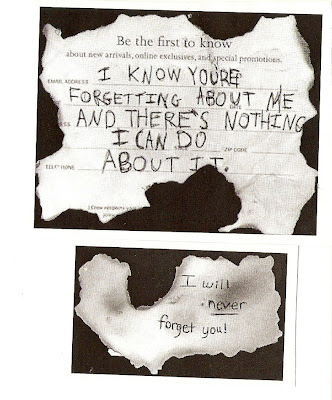 Be the first to know
about new arrivals, online exclusives, and special promotions.
EMAIL ADDRESS
I KNOW YOU'RE
FORGETTING ABOUT ME
AND THERE'S NOTHING
I CAN DO
ZIP CODE
ABOUT IT.
I will
never
forget you!